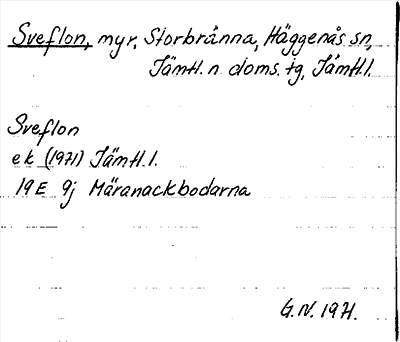 Sveflon, myr, Storbränna, Häggenås sn,
Jämtl. n doms. tg, Jämtl. l.
Sveflon
ek (1971) Jämtl. l.
19E 9j Märanackbodarna
G.N. 1971.